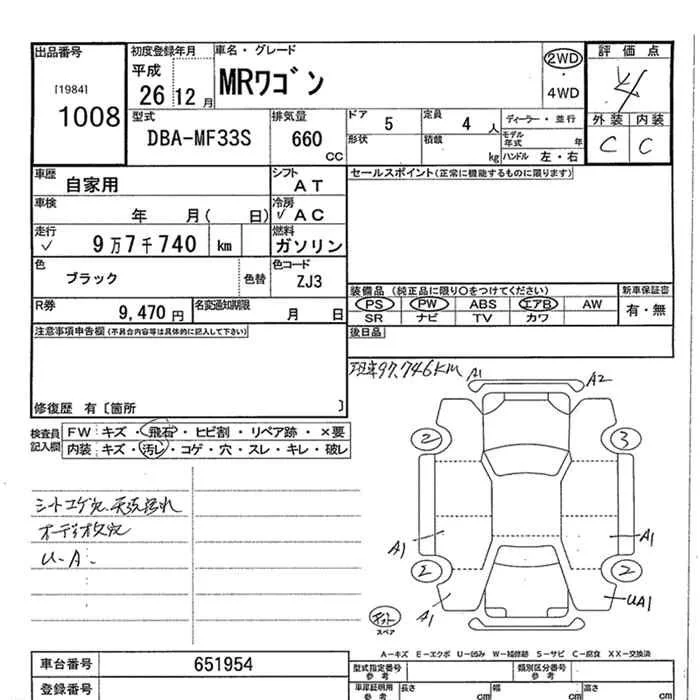 出品番号
[1984]
1008
初度登録年月
平成
26 12 月
車名・グレード
MRワゴン
2WD
・
4WD
評価点
4
外装 内装
C C
型式
DBA-MF33S
排気量
660
CC
ドア 5
定員 4 人
ディーラー・並行
形状
積載 kg
モデル年式 年
ハンドル 左・右
車歴
自家用
シフト
AT
セールスポイント(正常に機能するものに限ります)
車検
年 月( 日)
冷房
✓AC
走行
✓ 9万7千740 km
燃料
ガソリン
色
ブラック
色替
色コード
ZJ3
装備品 (純正品に限り○をつけてください)
新車保証書
PS PW ABS エアB AW
有・無
SR ナビ TV カワ
R券
9,470 円
名変通知期限
月 日
後日品
注意事項申告欄(不具合内容等は具体的に記入して下さい)
現車97,746KM
修復歴 有〔箇所 〕
検査員記入欄
FW: キズ・飛石・ヒビ割・リペア跡・×要
内装: キズ・汚レ・コゲ・穴・スレ・キレ・破レ
シートコゲ穴、天張汚れ
オーディオ欠穴
U-A
A1 A2
2 3
A1 A1
2 2
A1 UA1
スペア
A-キズ E-エクボ U-凹み W-補修跡 S-サビ C-腐食 XX-交換済
車台番号
651954
型式指定番号
参考
類別区分番号
参考
登録番号
車庫証明用
参考
長さ cm
幅 cm
高さ cm